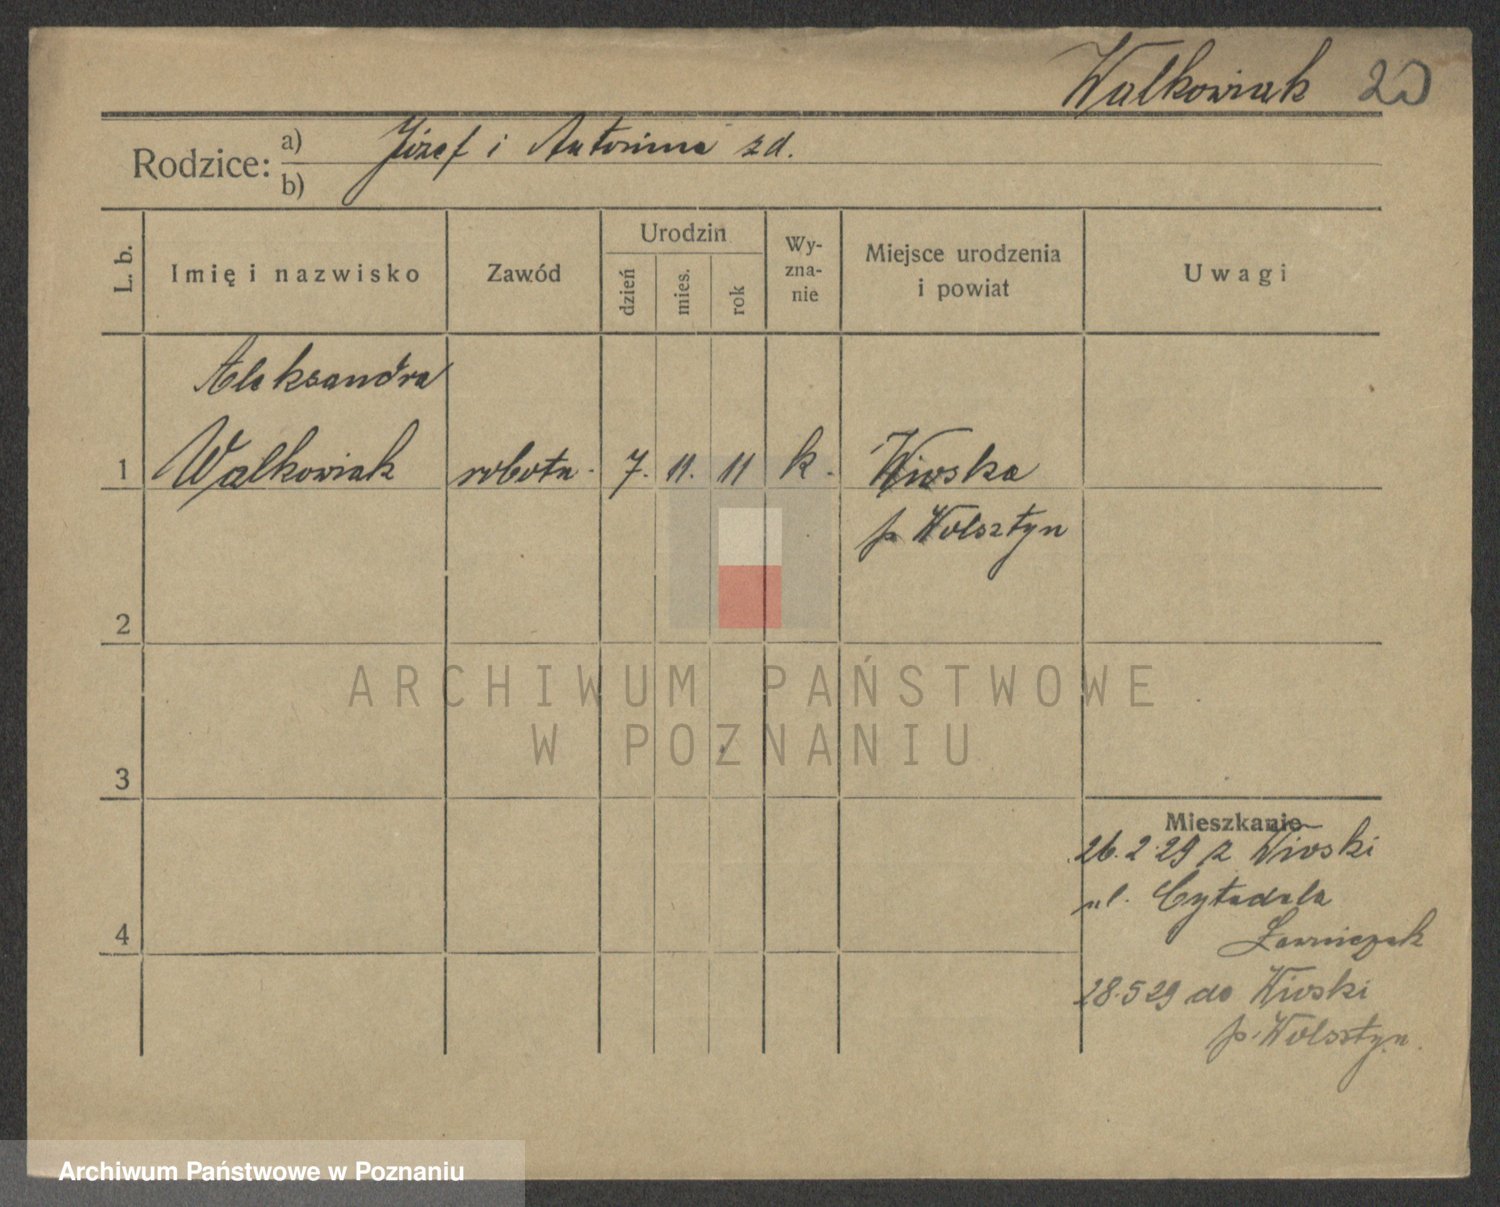 Walkowiak 20
Rodzice: a) Józef i Antonina zd.
b)
L. b.
Imię i nazwisko
Zawód
Urodzin
dzień
mies.
rok
Wy-
zna-
nie
Miejsce urodzenia
i powiat
Uwagi
Aleksandra
1 Walkowiak robotn. 7. 11. 11 k. Wioska
p Wolsztyn
2
3
Mieszkanie
26.2.29 z Wioski
ul. Cytadela
Ławniczak
4
28.5 29 do Wioski
p. Wolsztyn.
ARCHIWUM PAŃSTWOWE
W POZNANIU
Archiwum Państwowe w Poznaniu